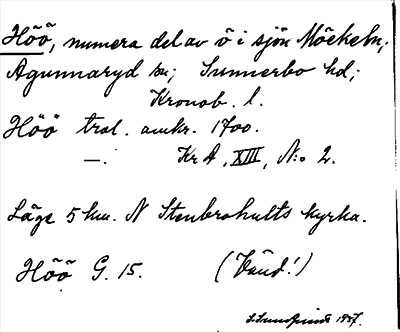 Höö, numera del av ö i sjön Möckeln;
Agunnaryd sn; Sunnerbo hd;
Kronob. l.
Höö tral. omkr. 1700.
—. Kr A, XIII, N:o 2.
Läge 5 km. N Stenbrohults kyrka.
Höö G. 15. (Vänd!)
1937.